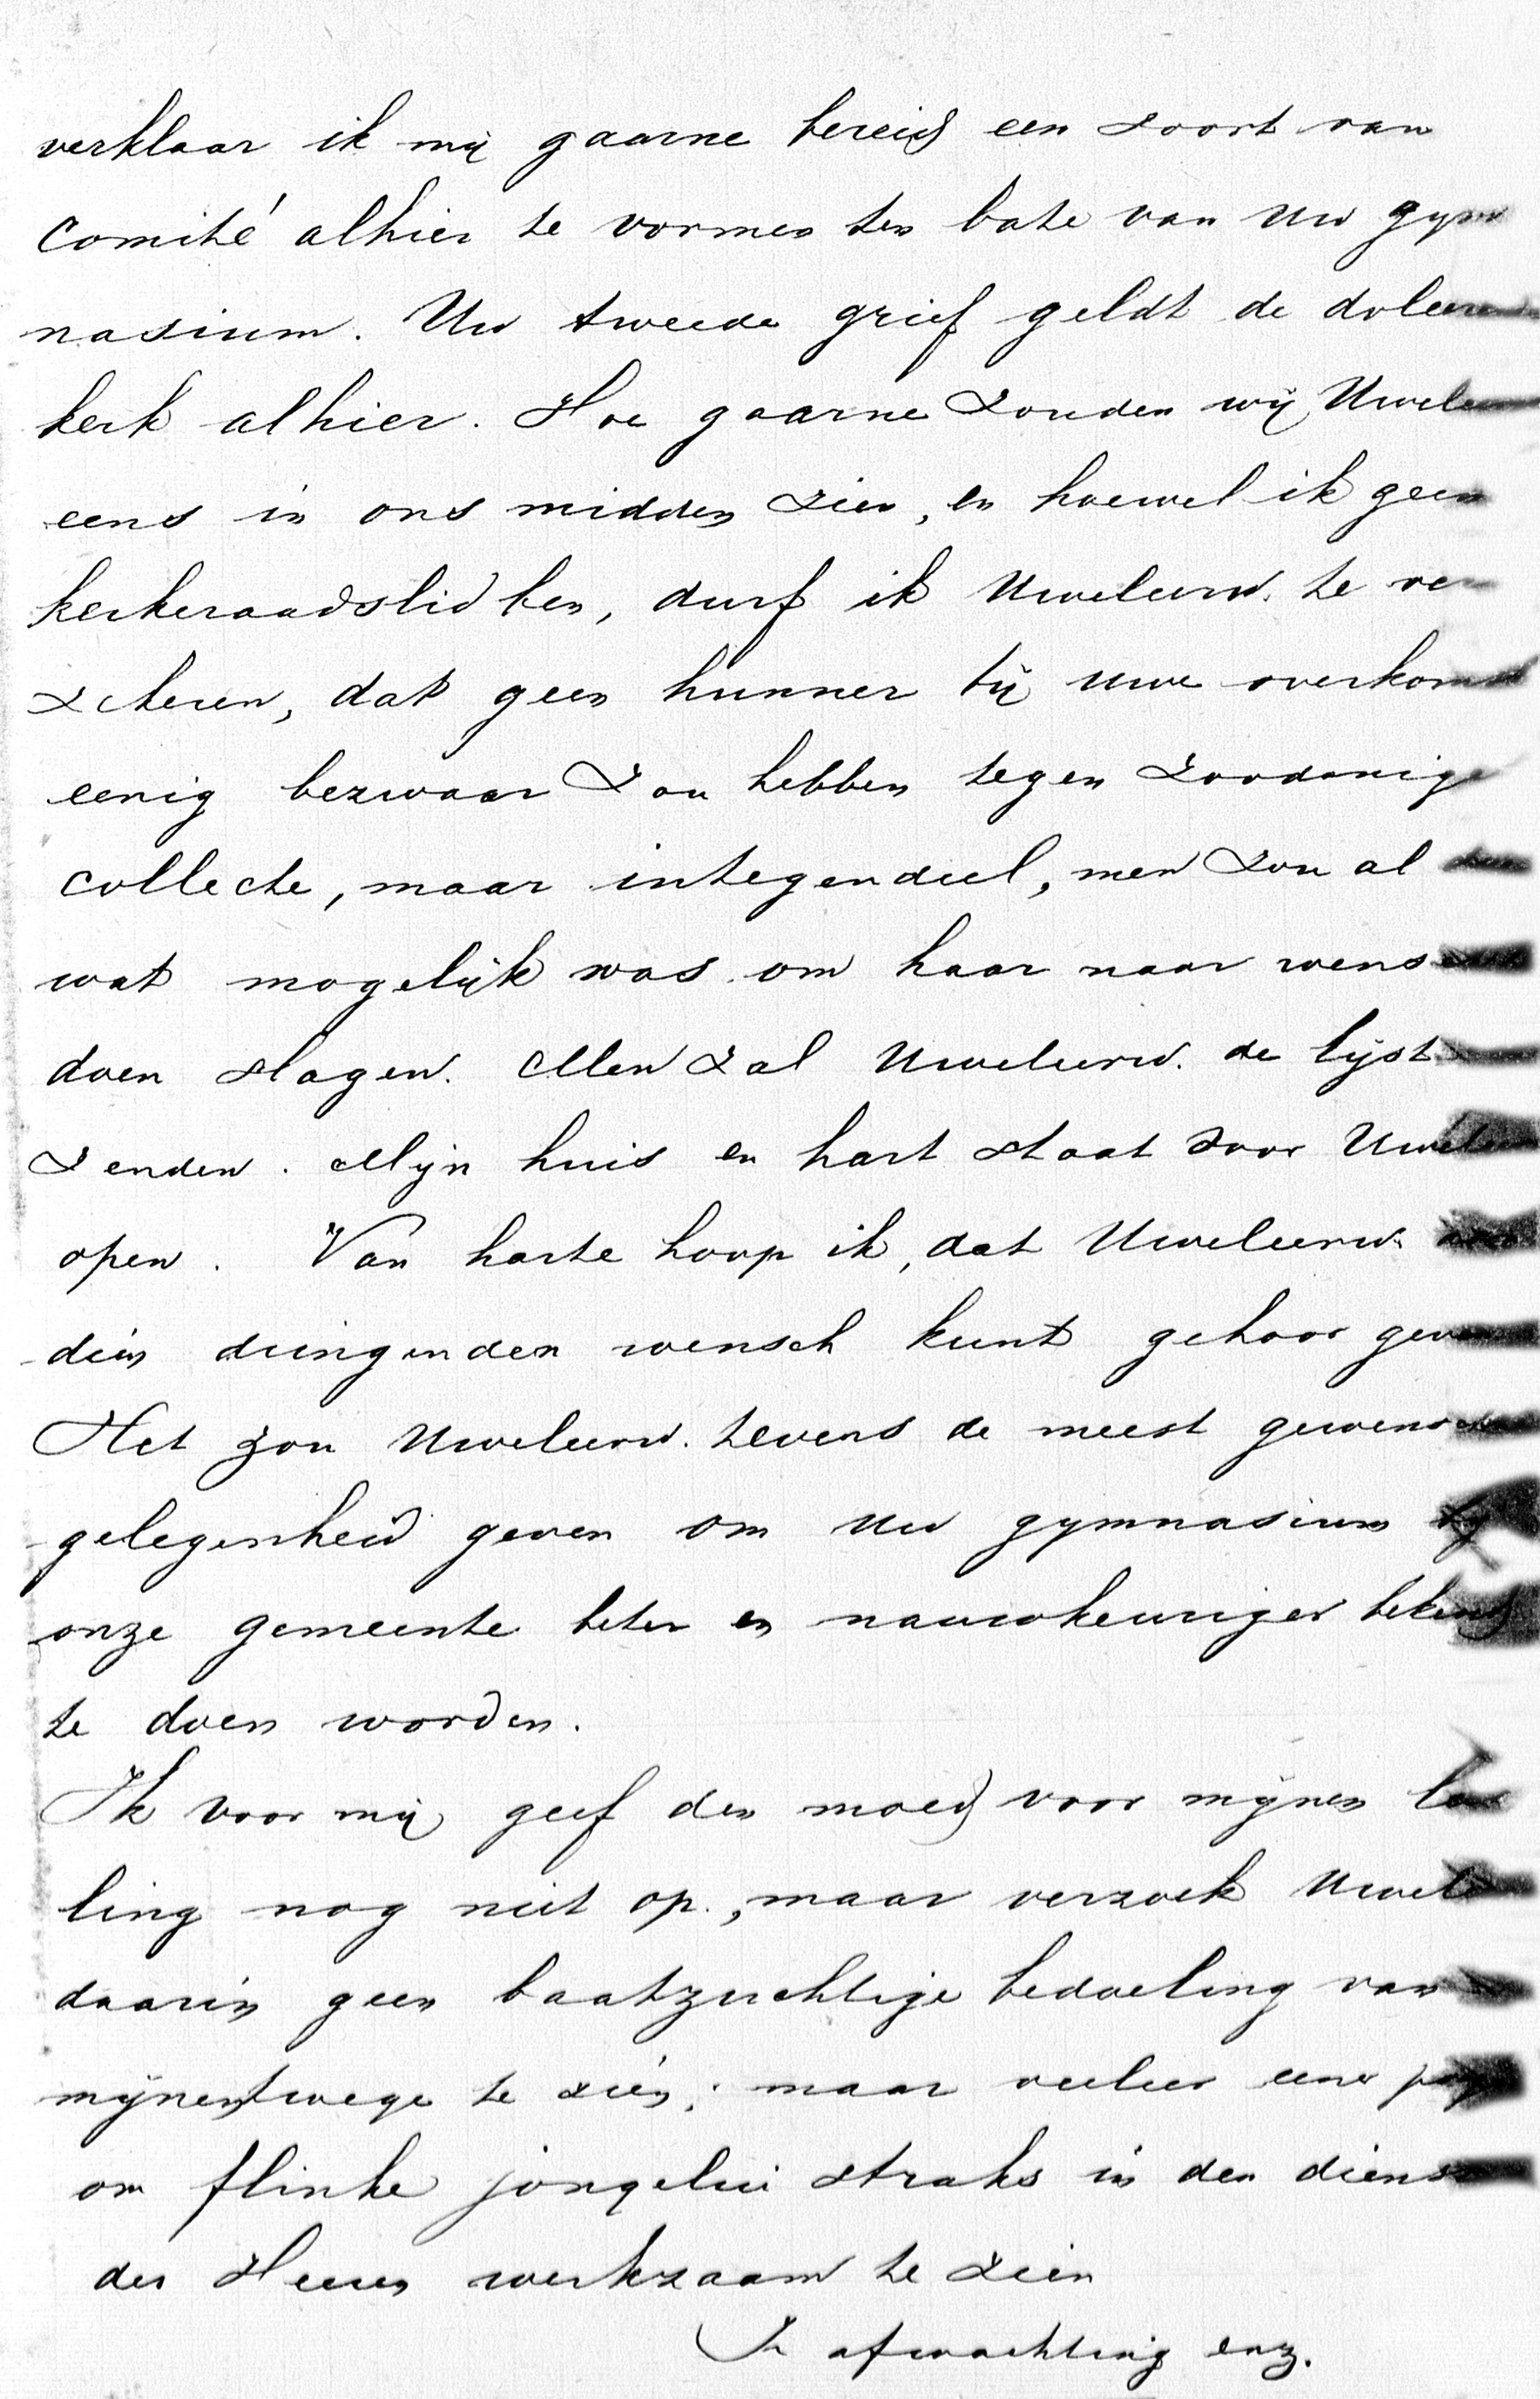 verklaar ik mij gaarne bereid een soort van
Comité alhier te vormen ten bate van Uw gym
nasium. Uw tweede grief geldt de doleer
kerk alhier. Hoe gaarne zouden wij Uwele
eens in ons midden zien, en hoewel ik geen
kerkeraadslid ben, durf ik Uweleerw. te ver
zekeren, dat geen hunner bij uwe overkomst
eenig bezwaar zou hebben tegen zoodanige
collecte, maar integendeel, men zou al
wat mogelijk was om haar naar wensch
doen slagen. Men zal Uweleerw. de lijst
zenden. Mijn huis en hart staat voor Uwele
open. Van harte hoop ik, dat Uweleerw.
dien dringenden wensch kunt gehoor geven
Het zou Uweleerw. tevens de meest gewensch
gelegenheid geven om Uw gymnasium bij
onze gemeente beter en nauwkeuriger bekend
te doen worden.
Ik voor mij geef den moed voor mijnen
ling nog niet op, maar verzoek Uwele
daarin geen baatzuchtige bedoeling van
mijnentwege te zien; maar veeleer eene
om flinke jongelui straks in den dienst
des Heeren werkzaam te zien
In afwachting enz.